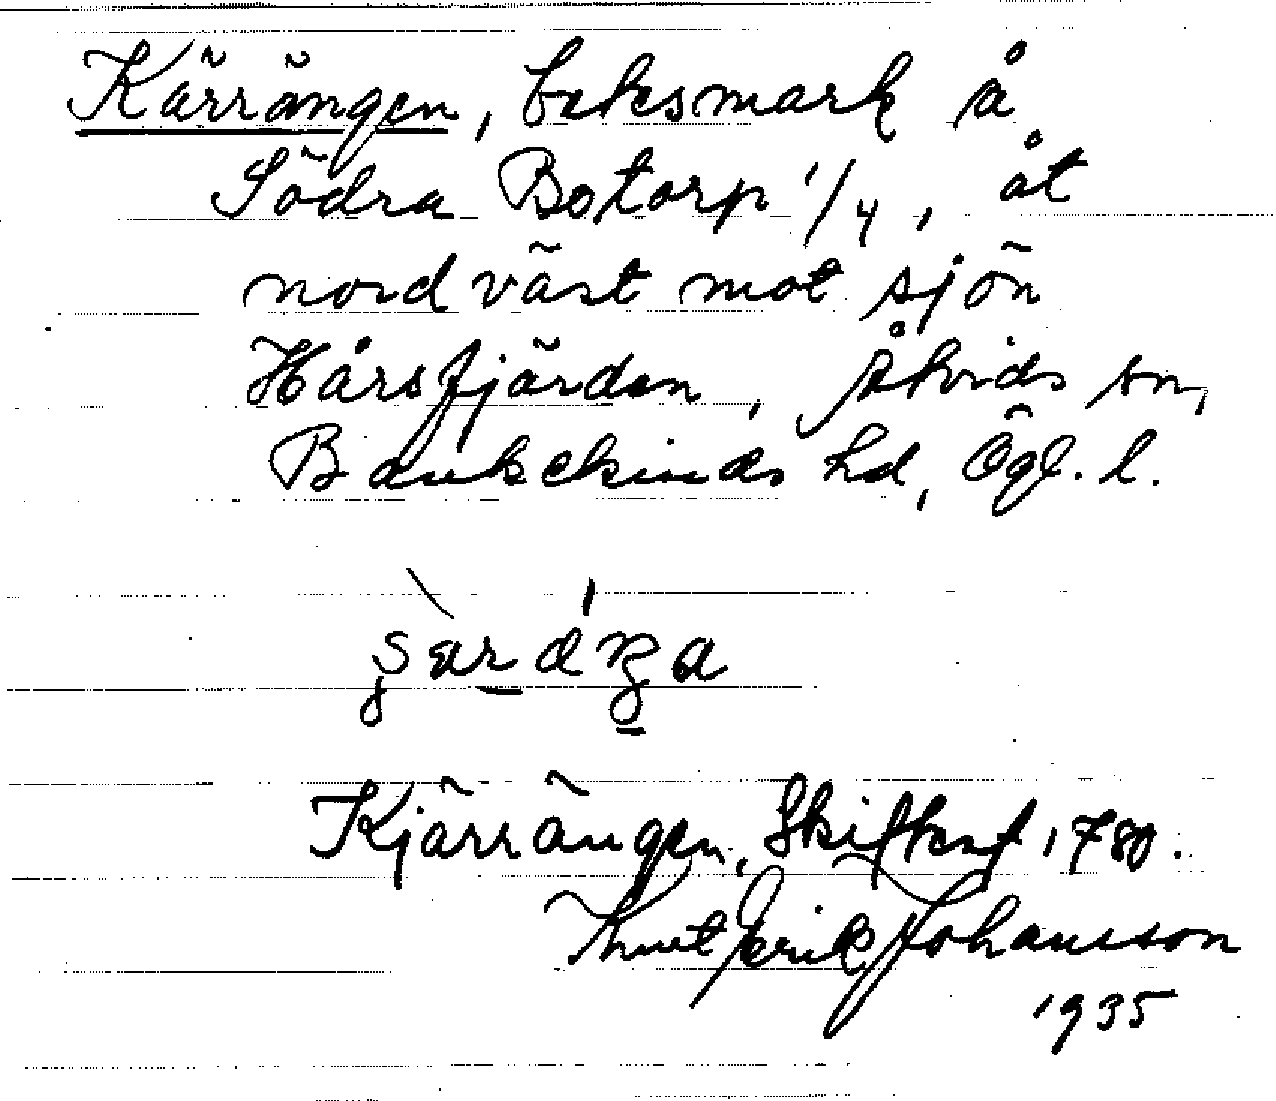 Kärrängen, beksmark å
Södra Botorp 1/4, åt
nordväst mot sjön
Hårsfjärden, Åtvids sn,
Bankekinds hd, Ögl. l.
Kjärrängen, Skifteskf 1780.
Knut Erik Johansson
1935